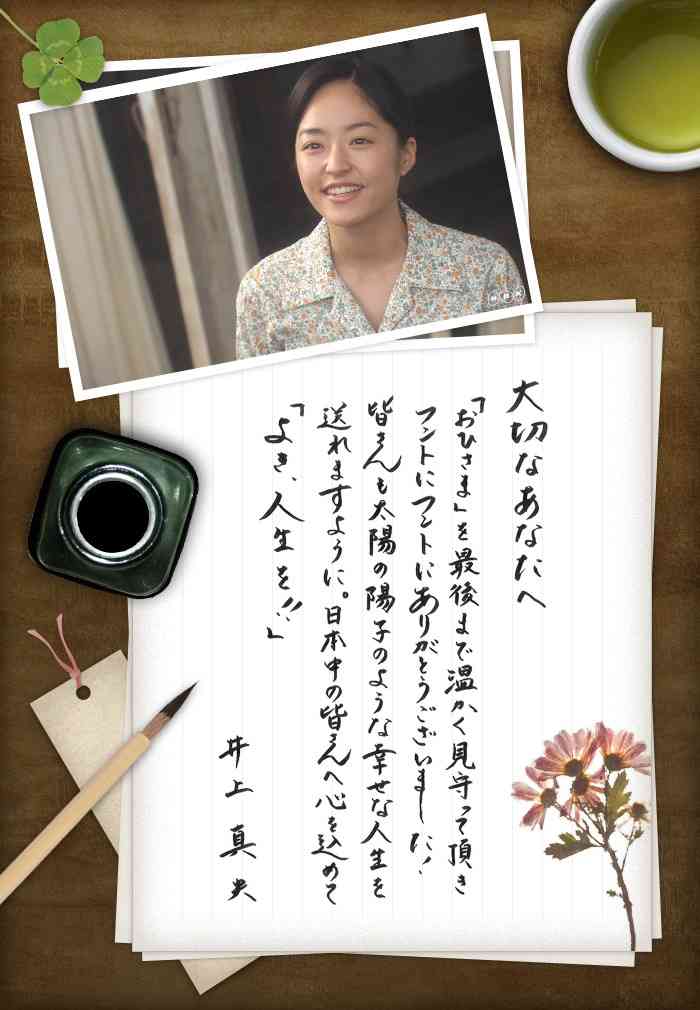 大切なあなたへ
「おひさま」を最後まで温かく見守って頂き
ホントにホントにありがとうございました!
皆さんも太陽の陽子のような幸せな人生を
送れますように。日本中の皆さんへ心を込めて
「よき、人生を!!」
井上真央
NHK